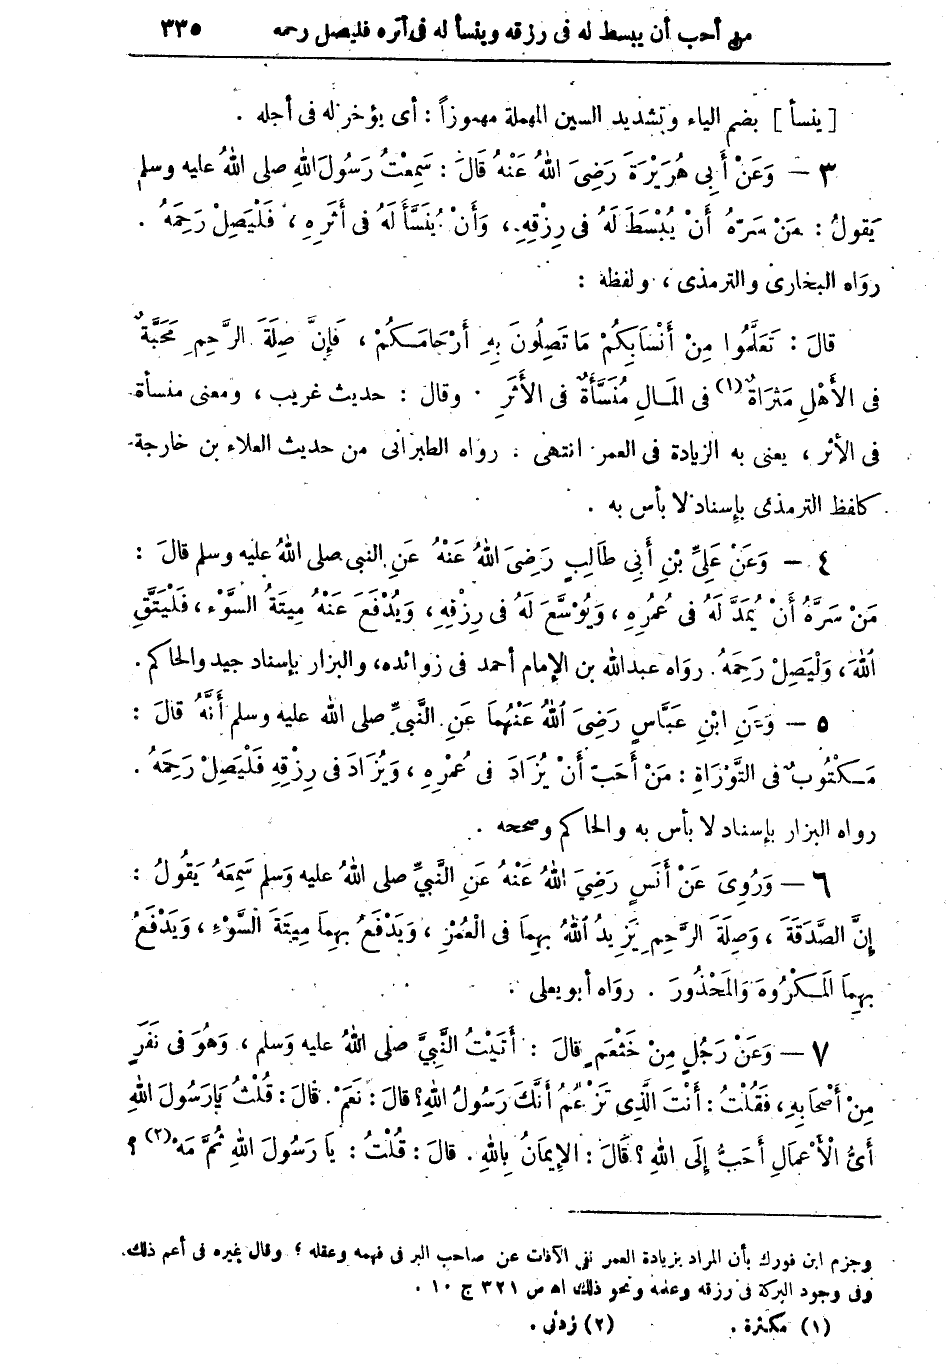 من أحب أن يبسط له فى رزقه وينسأ له فى أثره فليصل رحمه ٣٣٥
[ينسأ] بضم الياء وتشديد السين المهملة مهموزاً : أى يؤخر له فى أجله .
٣ — وَعَنْ أَبِى هُرَيْرَةَ رَضِىَ اللهُ عَنْهُ قَالَ : سَمِعْتُ رَسُولَ اللهِ صلى اللهُ عليه وسلم
يَقُولُ : مَنْ سَرَّهُ أَنْ يُبْسَطَ لَهُ فى رِزْقِهِ ، وَأَنْ يُنَسَّأَ لَهُ فى أَثَرِهِ ، فَلْيَصِلْ رَحِمَهُ .
رواه البخارى والترمذى ، ولفظه :
قالَ : تَعَلَّمُوا مِنْ أَنْسَابِكُمْ مَا تَصِلُونَ بِهِ أَرْحَامَكُمْ ، فَإِنَّ صِلَةَ الرَّحِمِ مَحَبَّةٌ
فى الأَهْلِ مَثْرَاةٌ (١) فى المَالِ مُنَسَّأَةٌ فى الأَثَرِ . وقال : حديث غريب ، ومعنى منسأة
فى الأثر ، يعنى به الزيادة فى العمر انتهى . رواه الطبرانى من حديث العلاء بن خارجة
كلفظ الترمذى بإسناد لا بأس به .
٤ — وَعَنْ عَلِىِّ بْنِ أَبِى طَالِبٍ رَضِىَ اللهُ عَنْهُ عَنِ النبى صلى اللهُ عليه وسلم قالَ :
مَنْ سَرَّهُ أَنْ يُمَدَّ لَهُ فى عُمُرِهِ ، وَيُوَسَّعَ لَهُ فى رِزْقِهِ ، وَيُدْفَعَ عَنْهُ مِيتَةُ السَّوْءِ ، فَلْيَتَّقِ
اللهَ ، وَلْيَصِلْ رَحِمَهُ . رواه عبدالله بن الإمام أحمد فى زوائده ، والبزار بإسناد جيد والحاكم .
٥ — وَعَنِ ابْنِ عَبَّاسٍ رَضِىَ اللهُ عَنْهُمَا عَنِ النَّبِىِّ صلى الله عليه وسلم أَنَّهُ قالَ :
مَكْتُوبٌ فى التَّوْرَاةِ : مَنْ أَحَبَّ أَنْ يُزَادَ فى عُمْرِهِ ، وَيُزَادَ فى رِزْقِهِ فَلْيَصِلْ رَحِمَهُ .
رواه البزار بإسناد لا بأس به والحاكم وصححه .
٦ — وَرُوِىَ عَنْ أَنَسٍ رَضِىَ اللهُ عَنْهُ عَنِ النَّبِىِّ صلى اللهُ عليه وَسلم سَمِعَهُ يَقُولُ :
إِنَّ الصَّدَقَةَ ، وَصِلَةَ الرَّحِمِ يَزِيدُ اللهُ بِهِمَا فى الْعُمْرِ ، وَيَدْفَعُ بِهِمَا مِيتَةَ السَّوْءِ ، وَيَدْفَعُ
بِهِمَا المَكْرُوهَ وَالمَحْذُورَ . رواه أبو يعلى .
٧ — وَعَنْ رَجُلٍ مِنْ خَثْعَمٍ قالَ : أَتَيْتُ النَّبِىَّ صلى اللهُ عليه وَسلم ، وَهُوَ فى نَفَرٍ
مِنْ أَصْحَابِهِ ، فَقُلْتُ : أَنْتَ الَّذِى تَزْعُمُ أَنَّكَ رَسُولُ اللهِ؟ قالَ : نَعَمْ . قالَ : قُلْتُ يَارَسُولَ اللهِ
أَىُّ الْأَعْمَالِ أَحَبُّ إِلَى اللهِ ؟ قَالَ : الإِيمَانُ بِاللهِ . قالَ : قُلْتُ : يَا رَسُولَ اللهِ ثُمَّ مَهْ (٢) ؟
وجزم ابن فورك بأن المراد بزيادة العمر نفى الآفات عن صاحب البر فى فهمه وعقله ؛ وقال غيره فى أعم ذلك .
وفى وجود البركة فى رزقه وعلمه ونحو ذلك اه ص ٣٢١ ج ١٠ .
(١) مكثرة . (٢) زدنى .